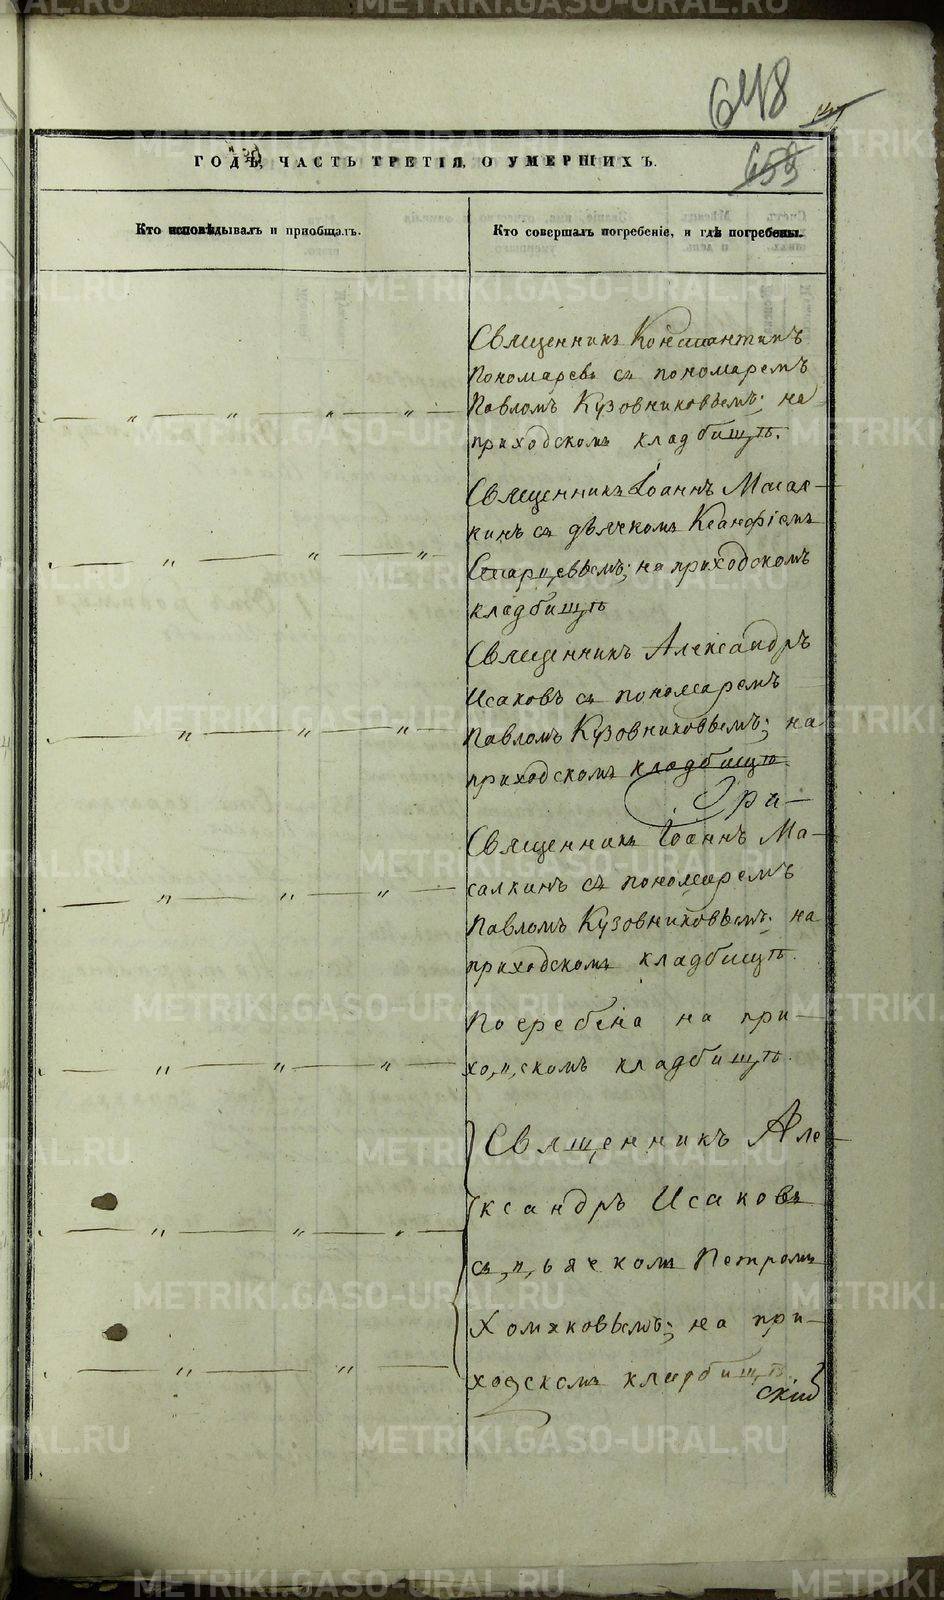 METRIKI.GASO-URAL.RU
648
659
ГОДѢ, ЧАСТЬ ТРЕТІЯ, О УМЕРШИХЪ.
Кто исповѣдывалъ и пріобщалъ.
Кто совершалъ погребеніе, и гдѣ погребены.
Священникъ Константинъ
Пономаревъ съ пономаремъ
Павломъ Кузовниковымъ; на
приходскомъ кладбищѣ.
Священникъ Іоаннъ Масал-
кинъ съ дьячкомъ Ксанфіемъ
Старцевымъ; на приходскомъ
кладбищѣ
Священникъ Александръ
Исаковъ съ пономаремъ
Павломъ Кузовниковымъ; на
приходскомъ кладбищѣ.
Гри-
Священникъ Іоаннъ Ма-
салкинъ съ пономаремъ
Павломъ Кузовниковымъ; на
приходскомъ кладбищѣ.
Погребена на при-
ходскомъ кладбищѣ.
Священникъ Але-
ксандръ Исаковъ
съ дьячкомъ Петромъ
Хомяковымъ; на при-
ходскомъ кладбищѣ
скій